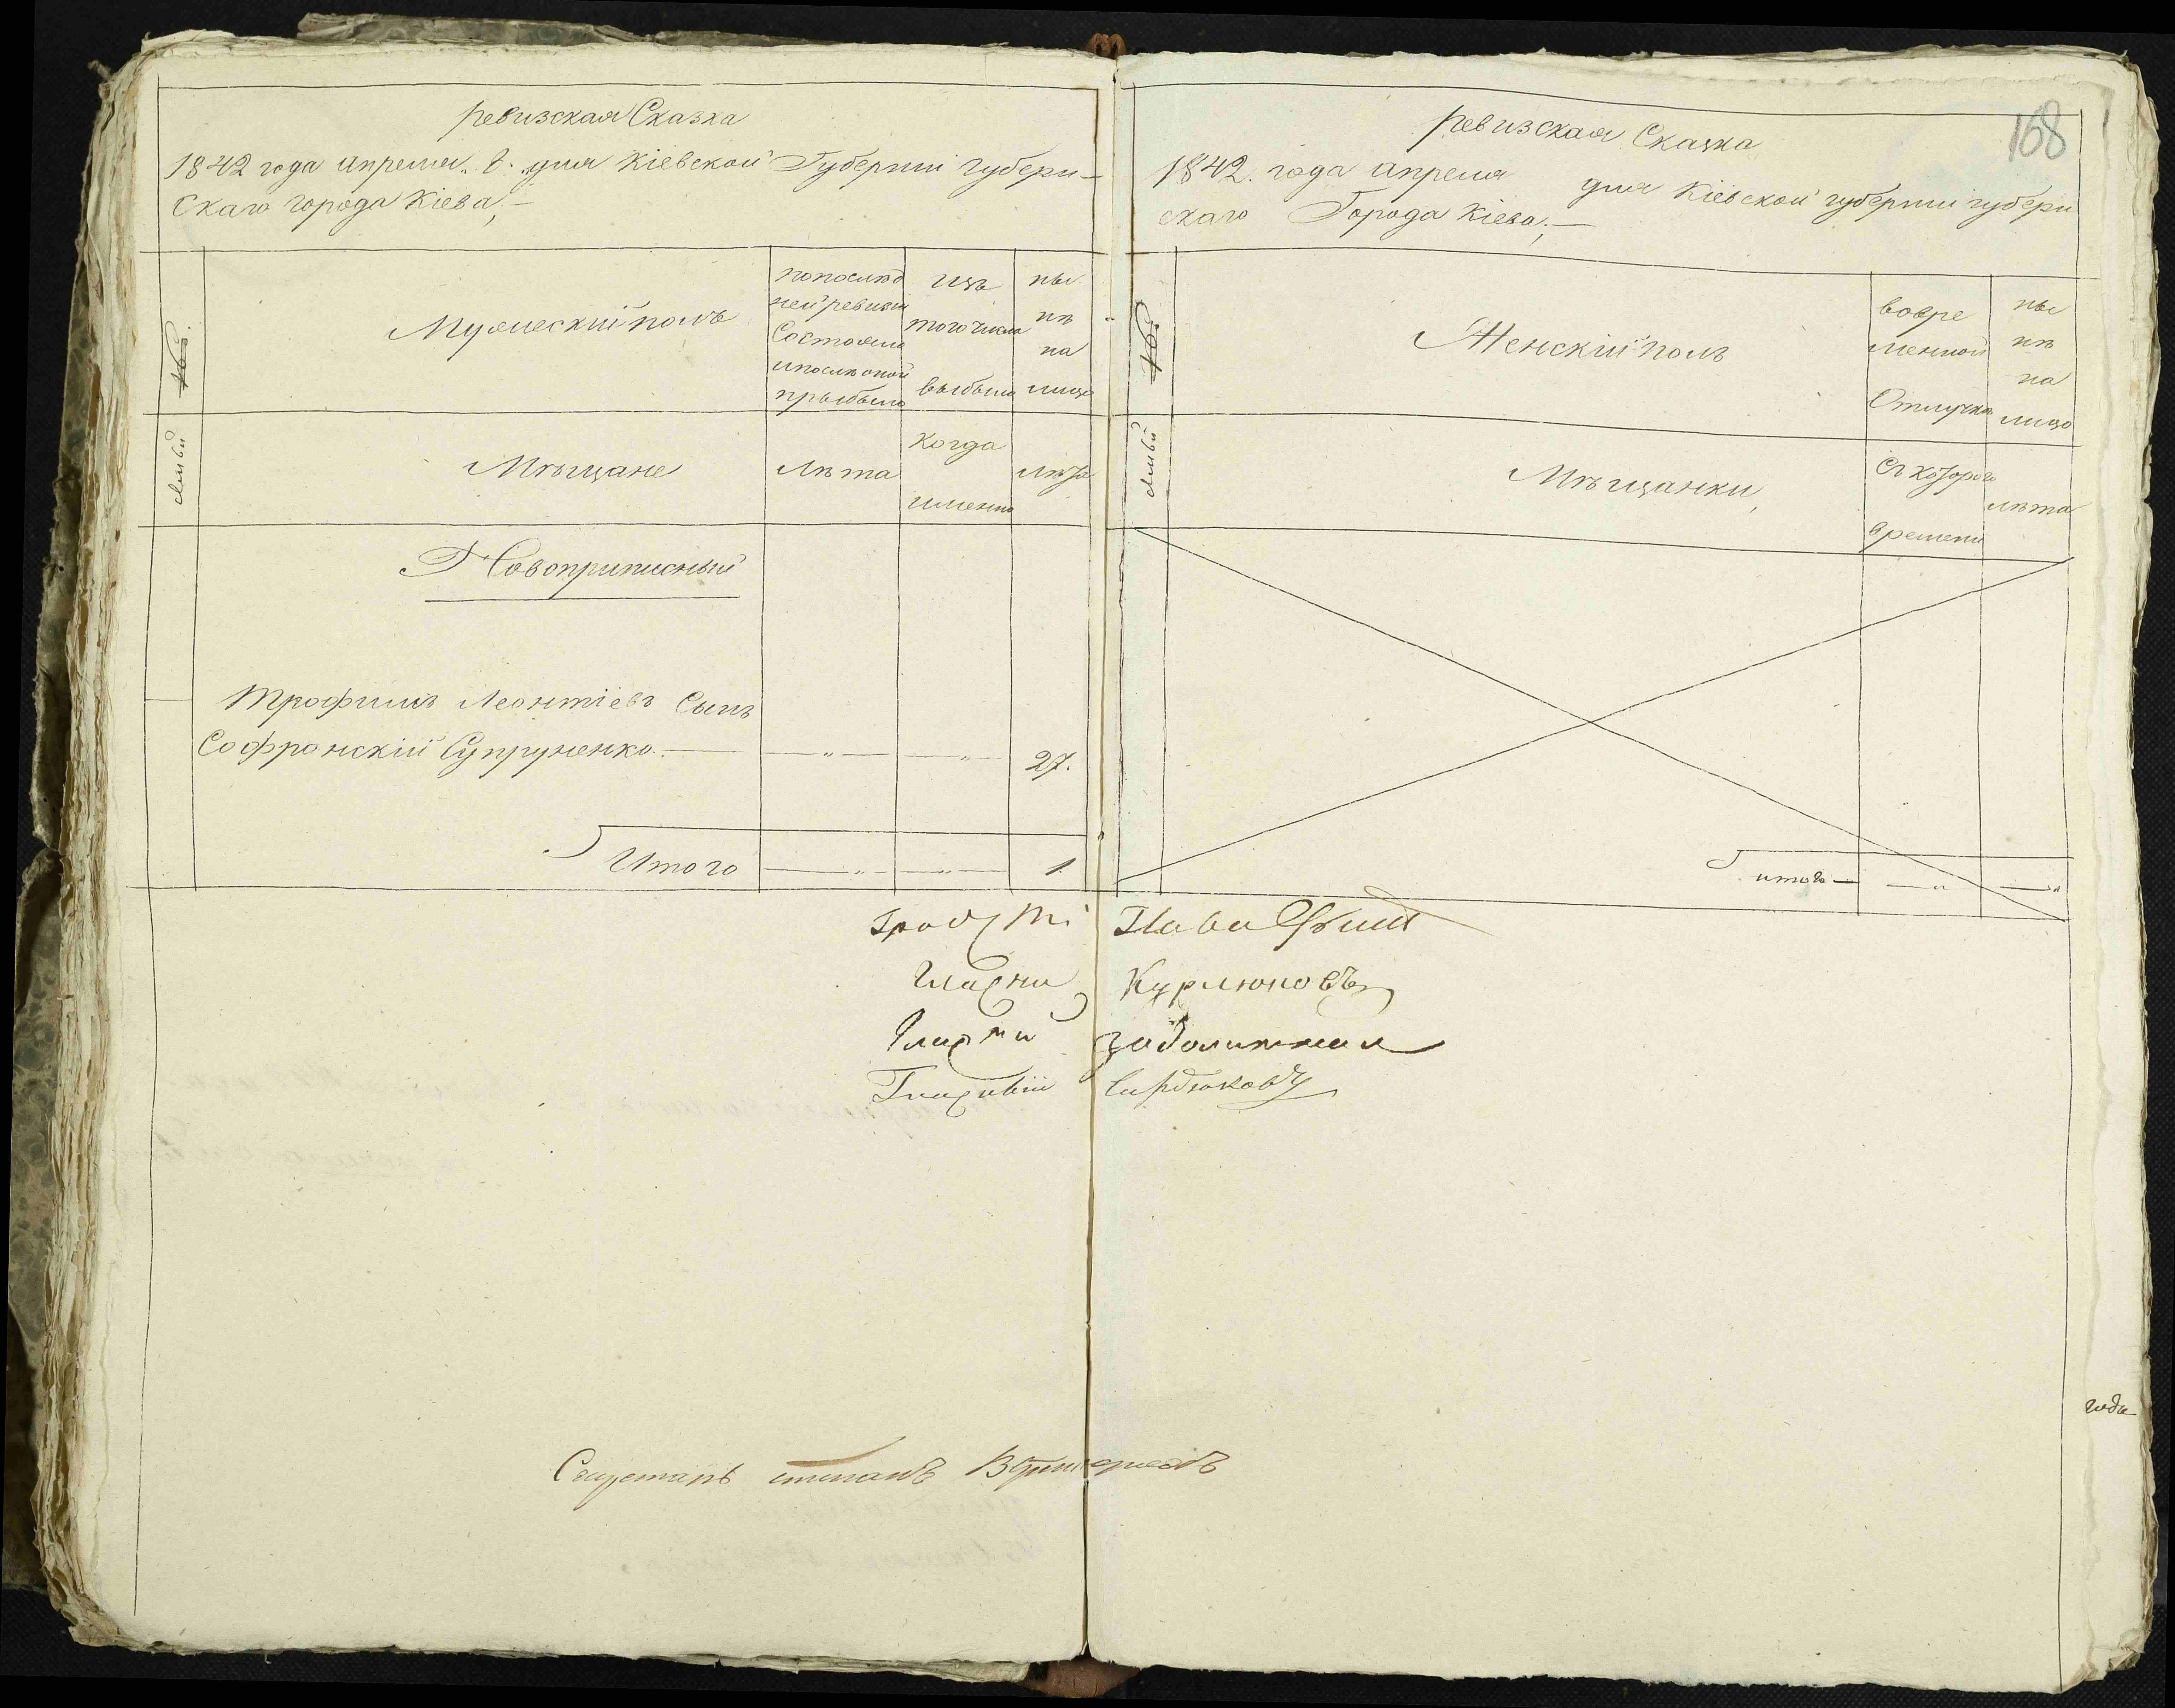 Ревизская Сказка
1842 года апреля „ 6 „ дня Кіевской Губерніи губерн-
скаго города Кіева,—
Мужескій полъ
по послѣд
ней ревизіи
состояло
и послѣ оной
прибыло
изъ
того числа
выбыло
ны
нѣ
на
лицо
семьи
Мѣщане
Лѣта
когда
именно
лѣта
Новоприписный
Трофимъ Леонтіевъ Сынъ
Софронскій Супруненко.— — „ — — „ — 27.
Итого — „ — — „ — 1
168
Ревизская Сказка
1842. года апреля дня Кіевской губерніи губерн
скаго Города Кіева;—
Женскій полъ
во вре
менной
Отлучкѣ
ны
нѣ
на
лицо
семьи
Мѣщанки,
Съ котораго
времени
лѣта
итого — — „ — „
Курлюковъ
Гласный
Сердюковъ
Секретарь
года